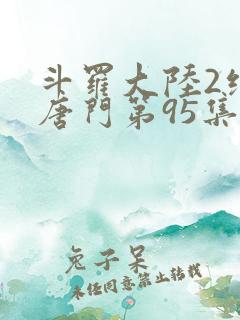 斗羅大陸2絕
唐門第95集
兔子呆
未任同意禁止轉載